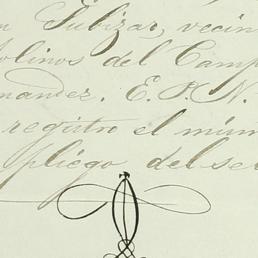 n Tubizar, vecin
olinos del Camp
nandez. E. P. N.
registro el núm
pliego del se